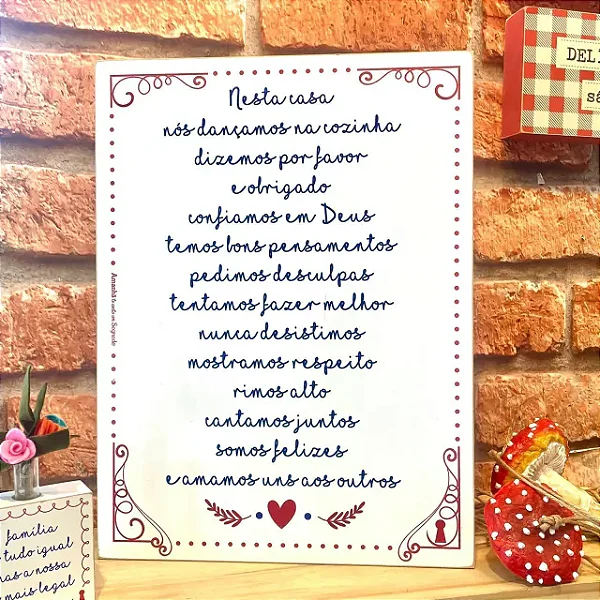 Nesta casa
nós dançamos na cozinha
dizemos por favor
e obrigado
confiamos em Deus
temos bons pensamentos
pedimos desculpas
tentamos fazer melhor
nunca desistimos
mostramos respeito
rimos alto
cantamos juntos
somos felizes
e amamos uns aos outros
Amanhã
Segredo
DELI
sã
família
tudo igual
a nossa
mais legal